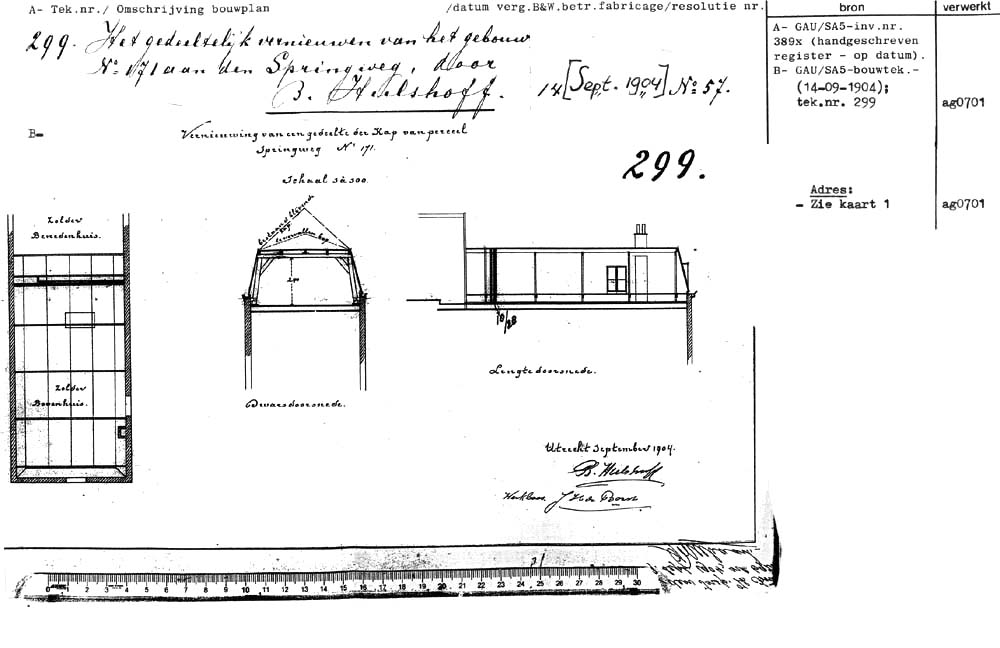 A- Tek.nr./ Omschrijving bouwplan /datum verg.B&W.betr.fabricage/resolutie nr.
bron
verwerkt
299. Het gedeeltelijk vernieuwen van het gebouw
No: 171 aan den Springweg, door
B. Hulshoff. 14 [Sept. 1904] No: 57.
A- GAU/SA5-inv.nr.
389x (handgeschreven
register - op datum).
B- GAU/SA5-bouwtek.-
(14-09-1904);
tek.nr. 299
ag0701
Adres:
- Zie kaart 1
ag0701
B-
Vernieuwing van een gedeelte der Kap van perceel
Springweg No 171.
299.
Schaal 1 à 100.
Zolder
Benedenhuis.
Zolder
Bovenhuis.
bestaand blijvende
kap
Dwarsdoorsnede.
10/28
Lengtedoorsnede.
Utrecht September 1904.
B. Hulshoff
0 1 2 3 4 5 6 7 8 9 10 11 12 13 14 15 16 17 18 19 20 21 22 23 24 25 26 27 28 29 30